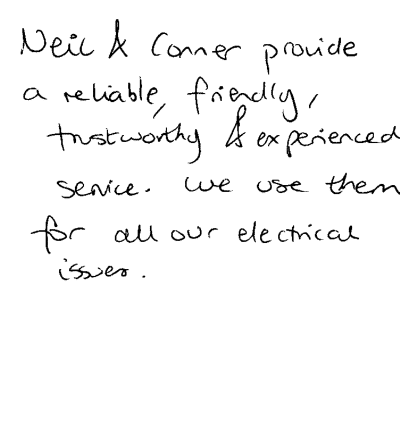 Neil & Conner provide
a reliable, friendly,
trustworthy & experienced
service. We use them
for all our electrical
issues.